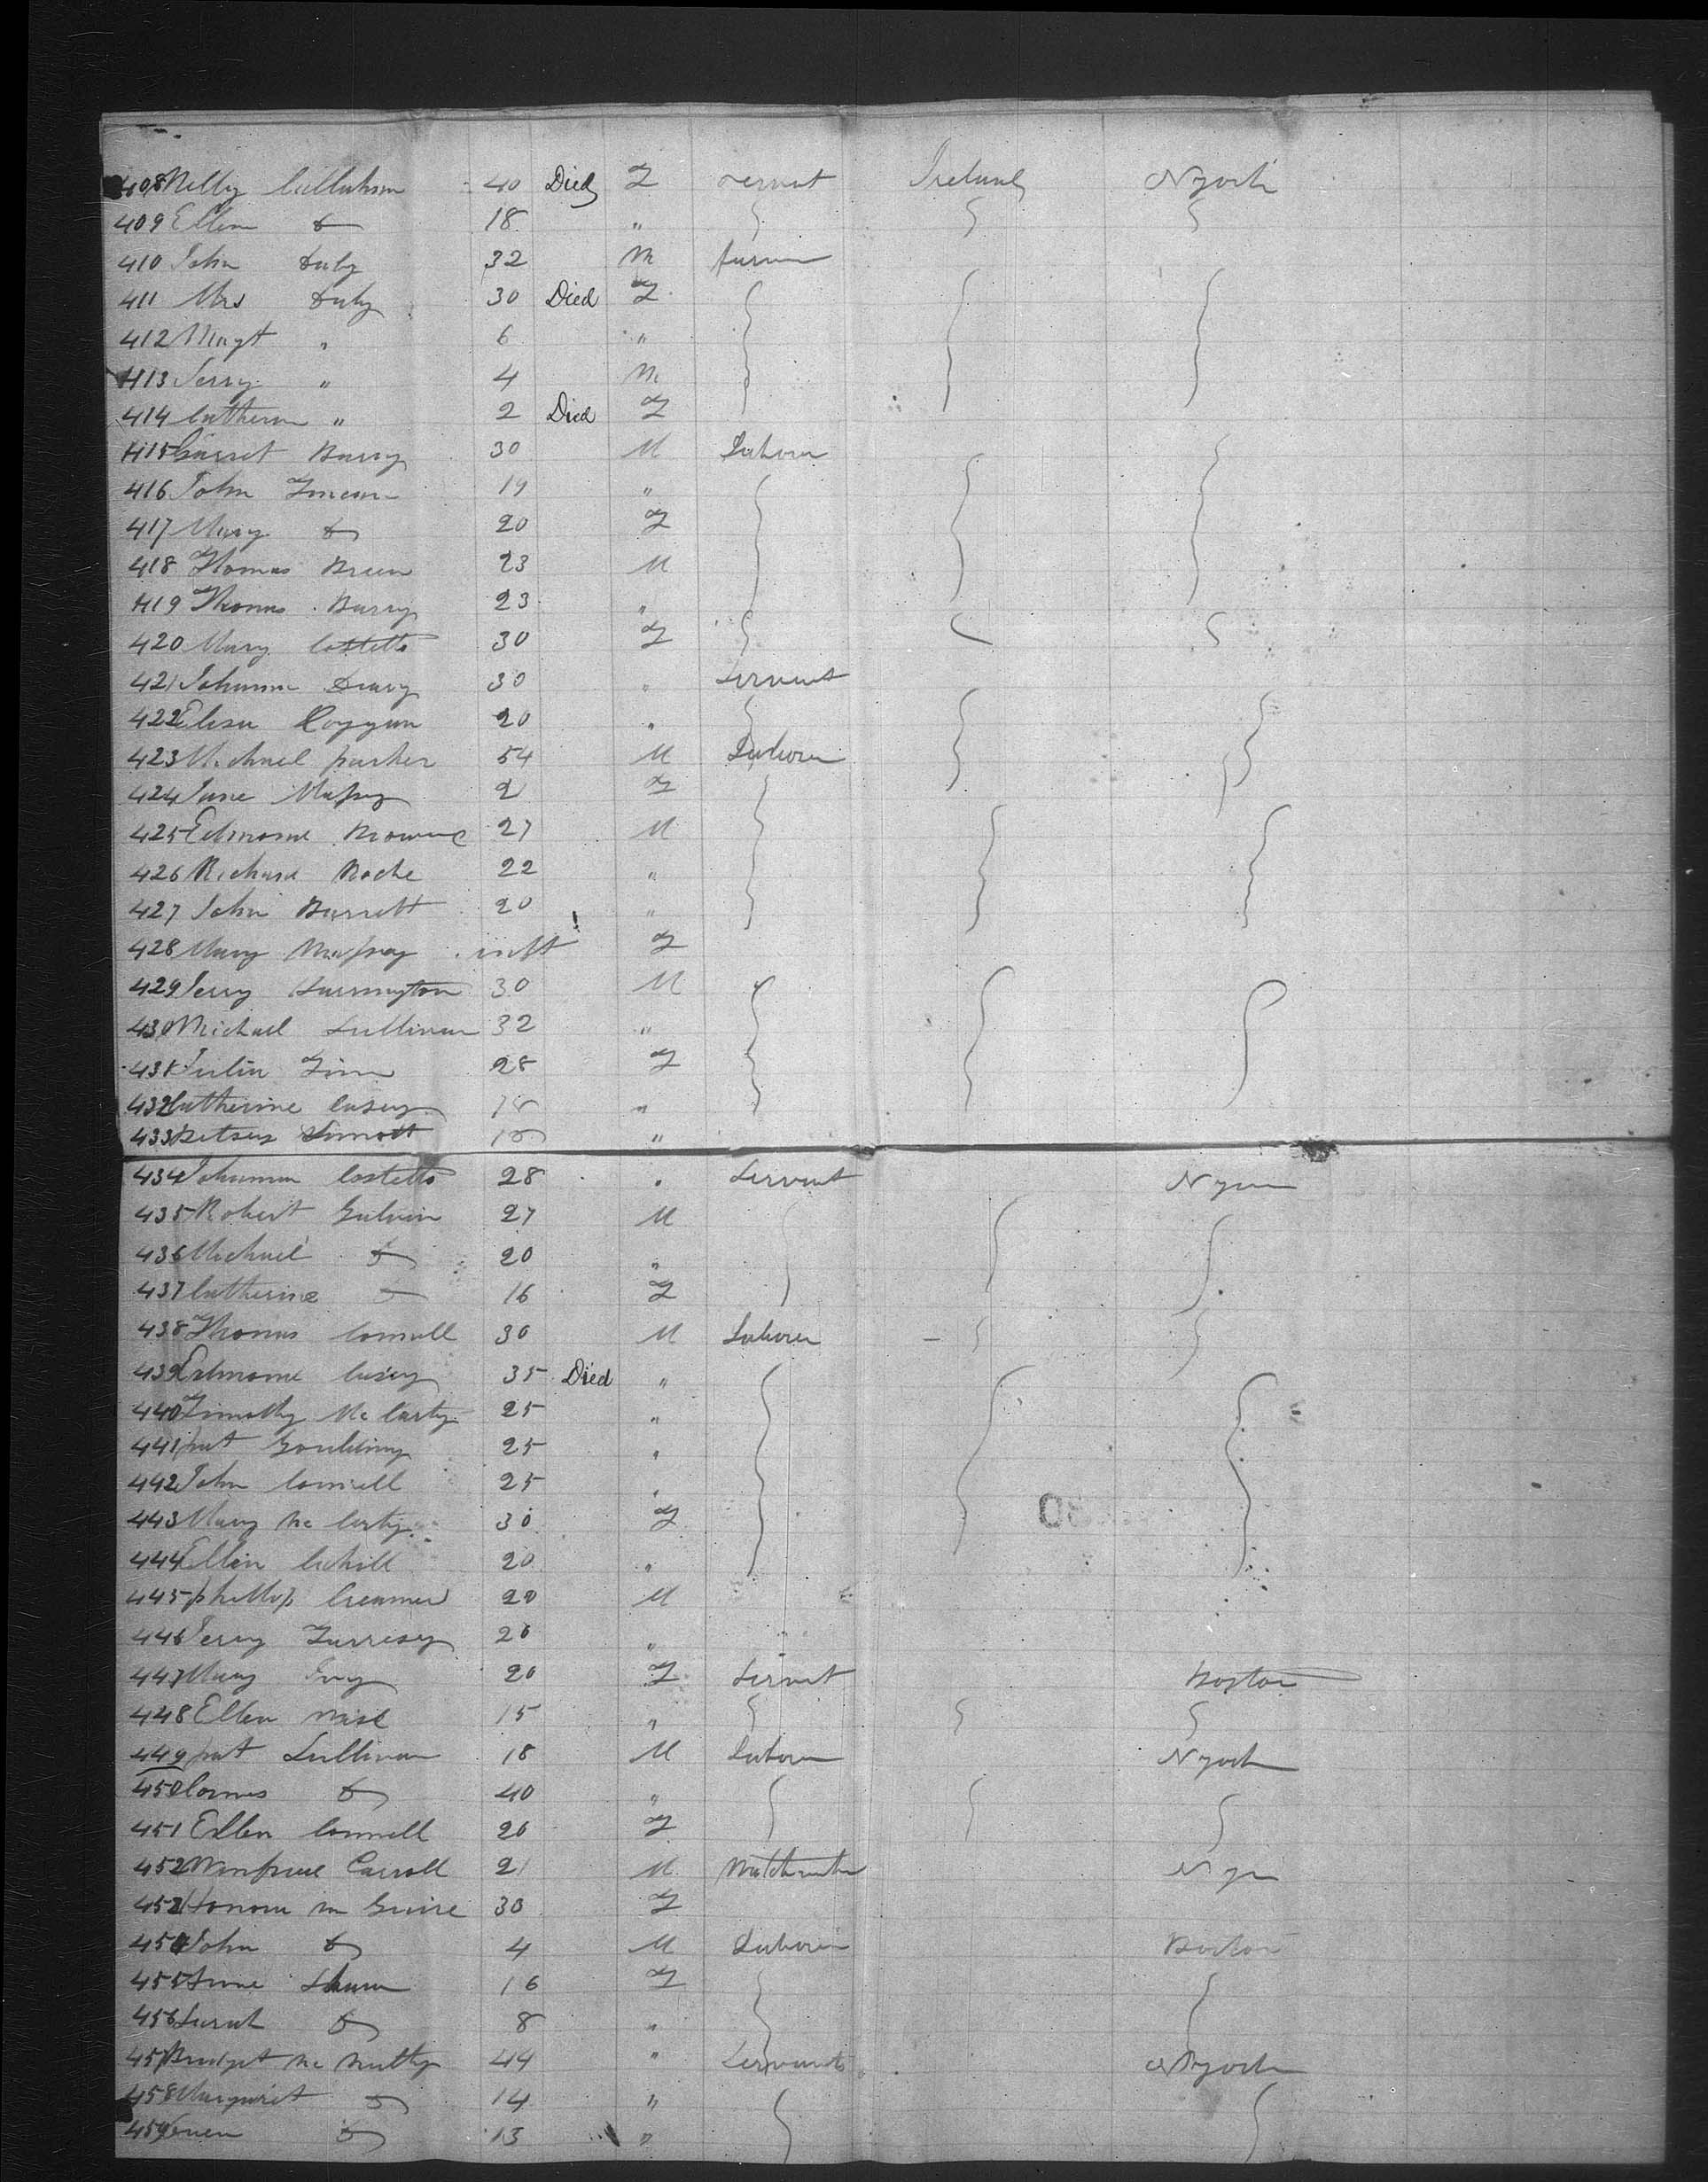 408 Nelly Callahan 40 Died F servnt Ireland NYork
409 Ellen Do 18 "
410 John Daly 32 M farmer
411 Mrs Daly 30 Died F
412 Magt " 6 "
413 Jerry " 4 M
414 Catherin " 2 Died F
415 Garret Barry 30 M Laborer
416 John 19 "
417 Mary Do 20 F
418 Thomas Breen 23 M
419 Thomas Barry 23 "
420 Mary Costello 30 F
421 Johanna 30 " Servant
422 Elisa Coggan 20 "
423 Michael parker 54 M Laborer
424 Jane 2 F
425 Edmond Browne 27 M
426 Richard Roche 22 "
427 John Barrett 20 "
428 Mary inft F
429 Jerry Harrington 30 M
430 Michael Sullivan 32 "
431 Julia Finn 28 F
432 Catherine Casey 18 "
433 Betsey "
434 Johanna Costello 28 " Servant
435 Robert Galvin 27 M
436 Michael Do 20 "
437 Catherine Do 16 F
438 Thomas Connell 30 M Laborer
439 Edmond Casey 35 Died "
440 Timothy Mc Carty 25 "
441 pat Goulding 25 "
442 John Connell 25 "
443 Mary Mc Carty 30 F
444 Ellen Cahill 20 "
445 phillip Creamer 20 M
446 Jerry 20 "
447 Mary 20 F Servnt Boston
448 Ellen 15 "
449 pat Sullivan 18 M Laborer NYork
450 Do 40 "
451 Ellen Connell 20 F
452 Carroll 21 M
Honora Mc Guire 30 F
454 John Do 4 M Laborer Boston
455 16 F
456 Sarah Do 8 "
457 Bridget Mc Nulty 44 " Servants NYork
458 Margaret Do 14 "
459 Do 13 "